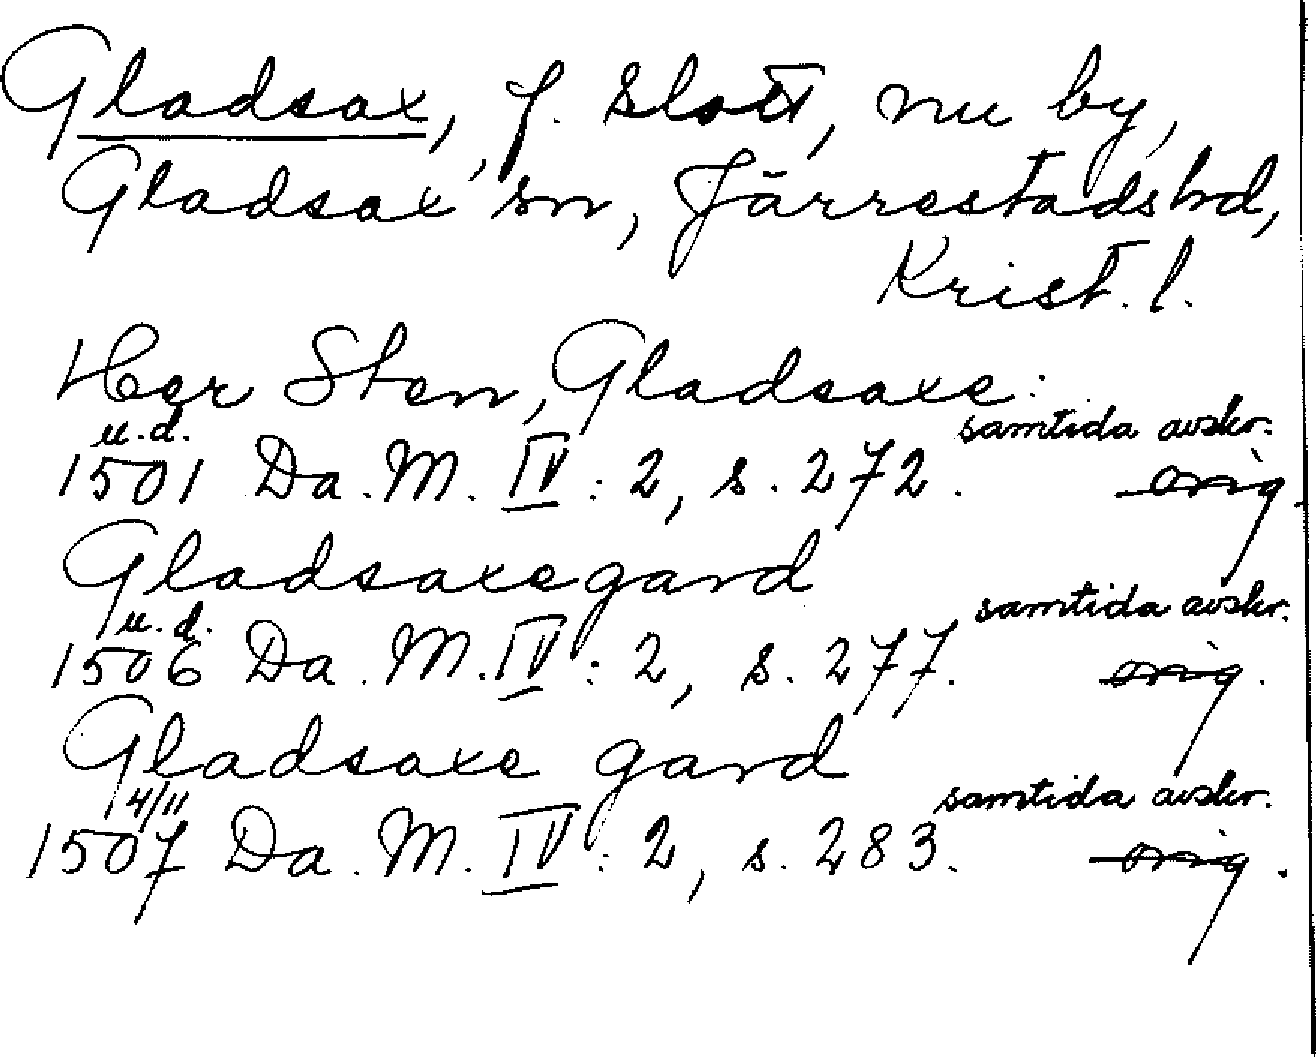 Gladsax, f. slott, nu by,
Gladsax sn, Järrestads hd,
Krist. l.
Her Sten, Gladsaxe:
u.d. samtida avskr.
1501 Da. M. IV: 2, s. 272. orig.
Gladsaxegard
u.d. samtida avskr.
1506 Da. M. IV: 2, s. 277. orig.
Gladsaxe gard
4/11 samtida avskr.
1507 Da. M. IV: 2, s. 283. orig.